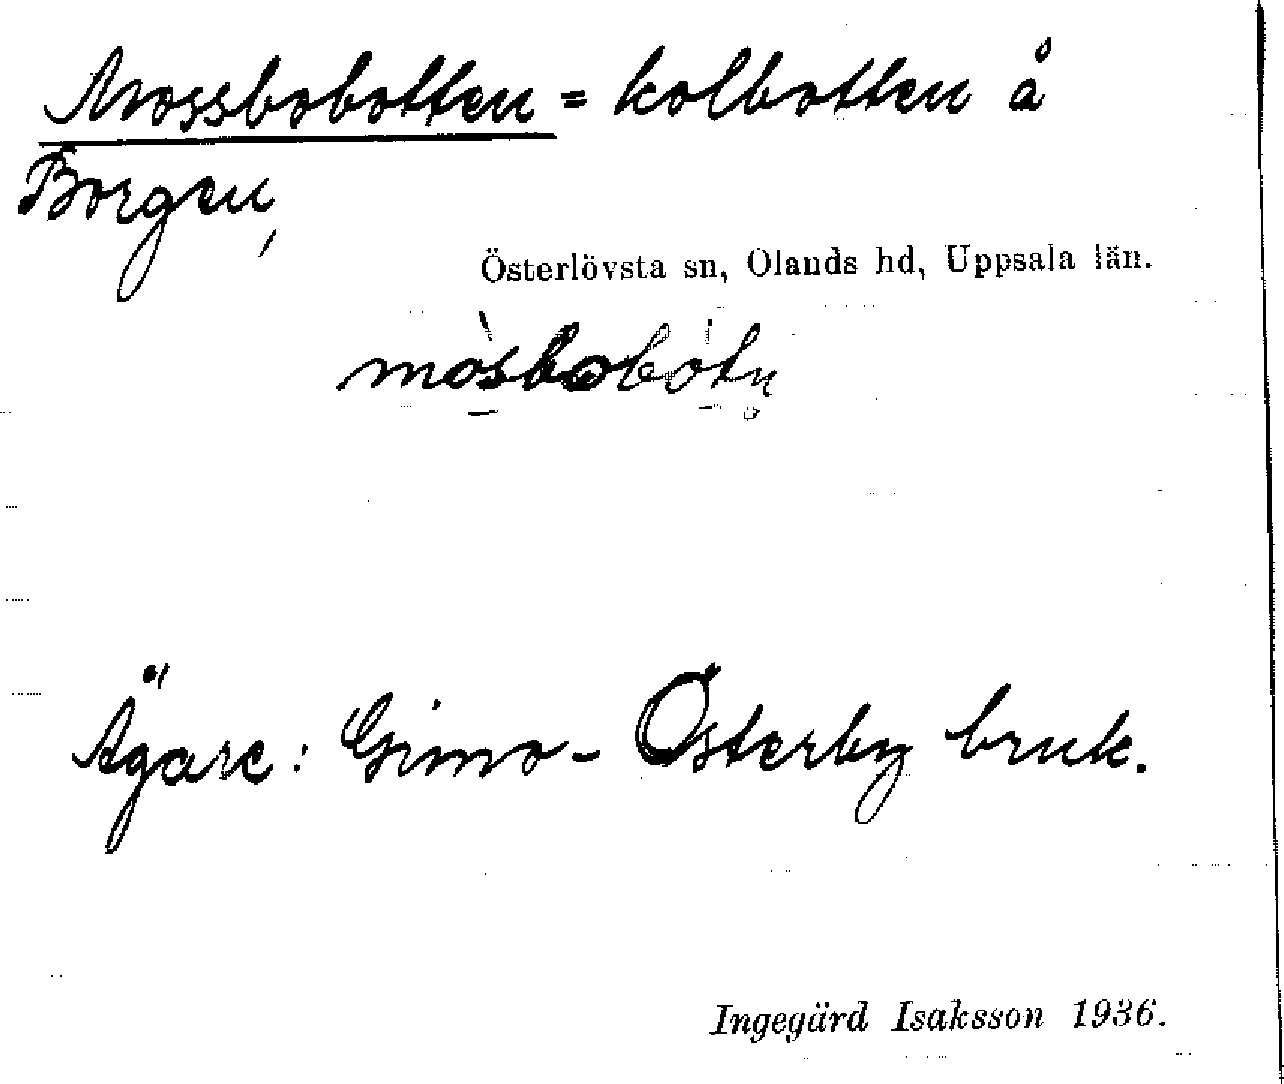 Mossbobotten = kolbotten å
Borgen,
Österlövsta sn, Olands hd, Uppsala län.
mòsbobòtn̥
Ägare: Gimo-Österby bruk.
Ingegärd Isaksson 1936.